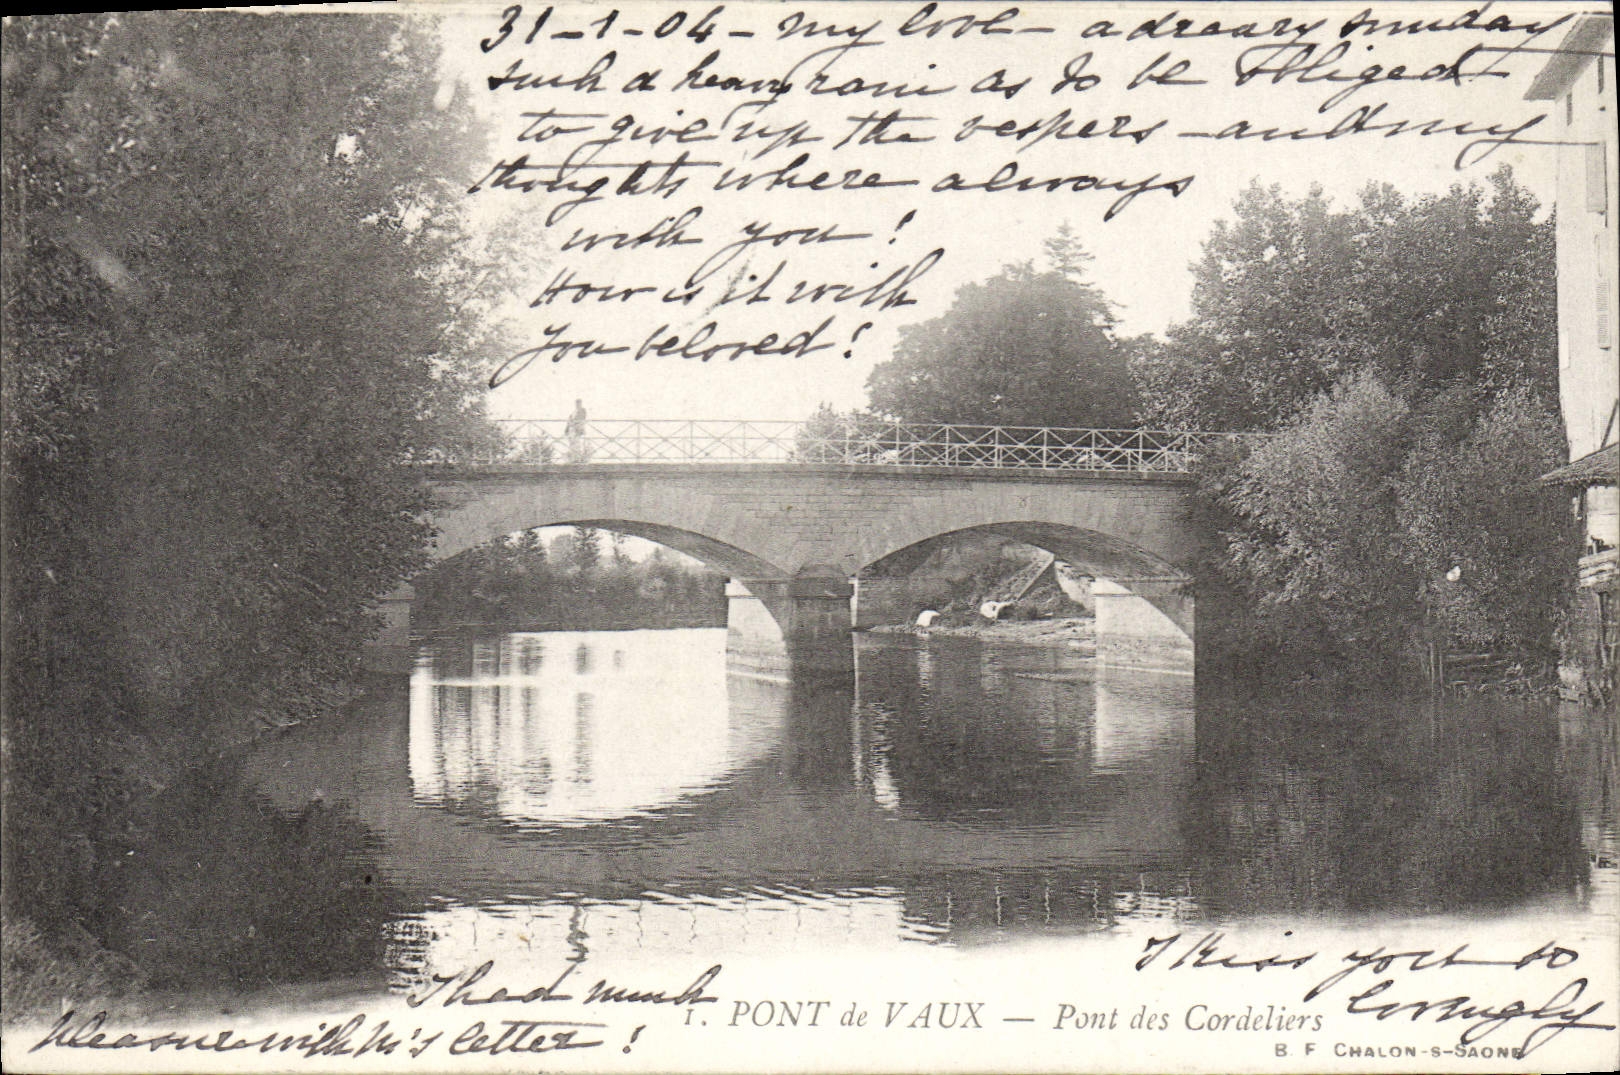 31-1-04 - my love - a dreary sunday
such a heavy rain as to be obliged
to give up the vespers - and my
thoughts where always
with you!
How is it with
you beloved!
I had much
pleasure with his letter!
I kiss you so
lovingly
1. PONT de VAUX — Pont des Cordeliers
B. F. CHALON-S-SAONE